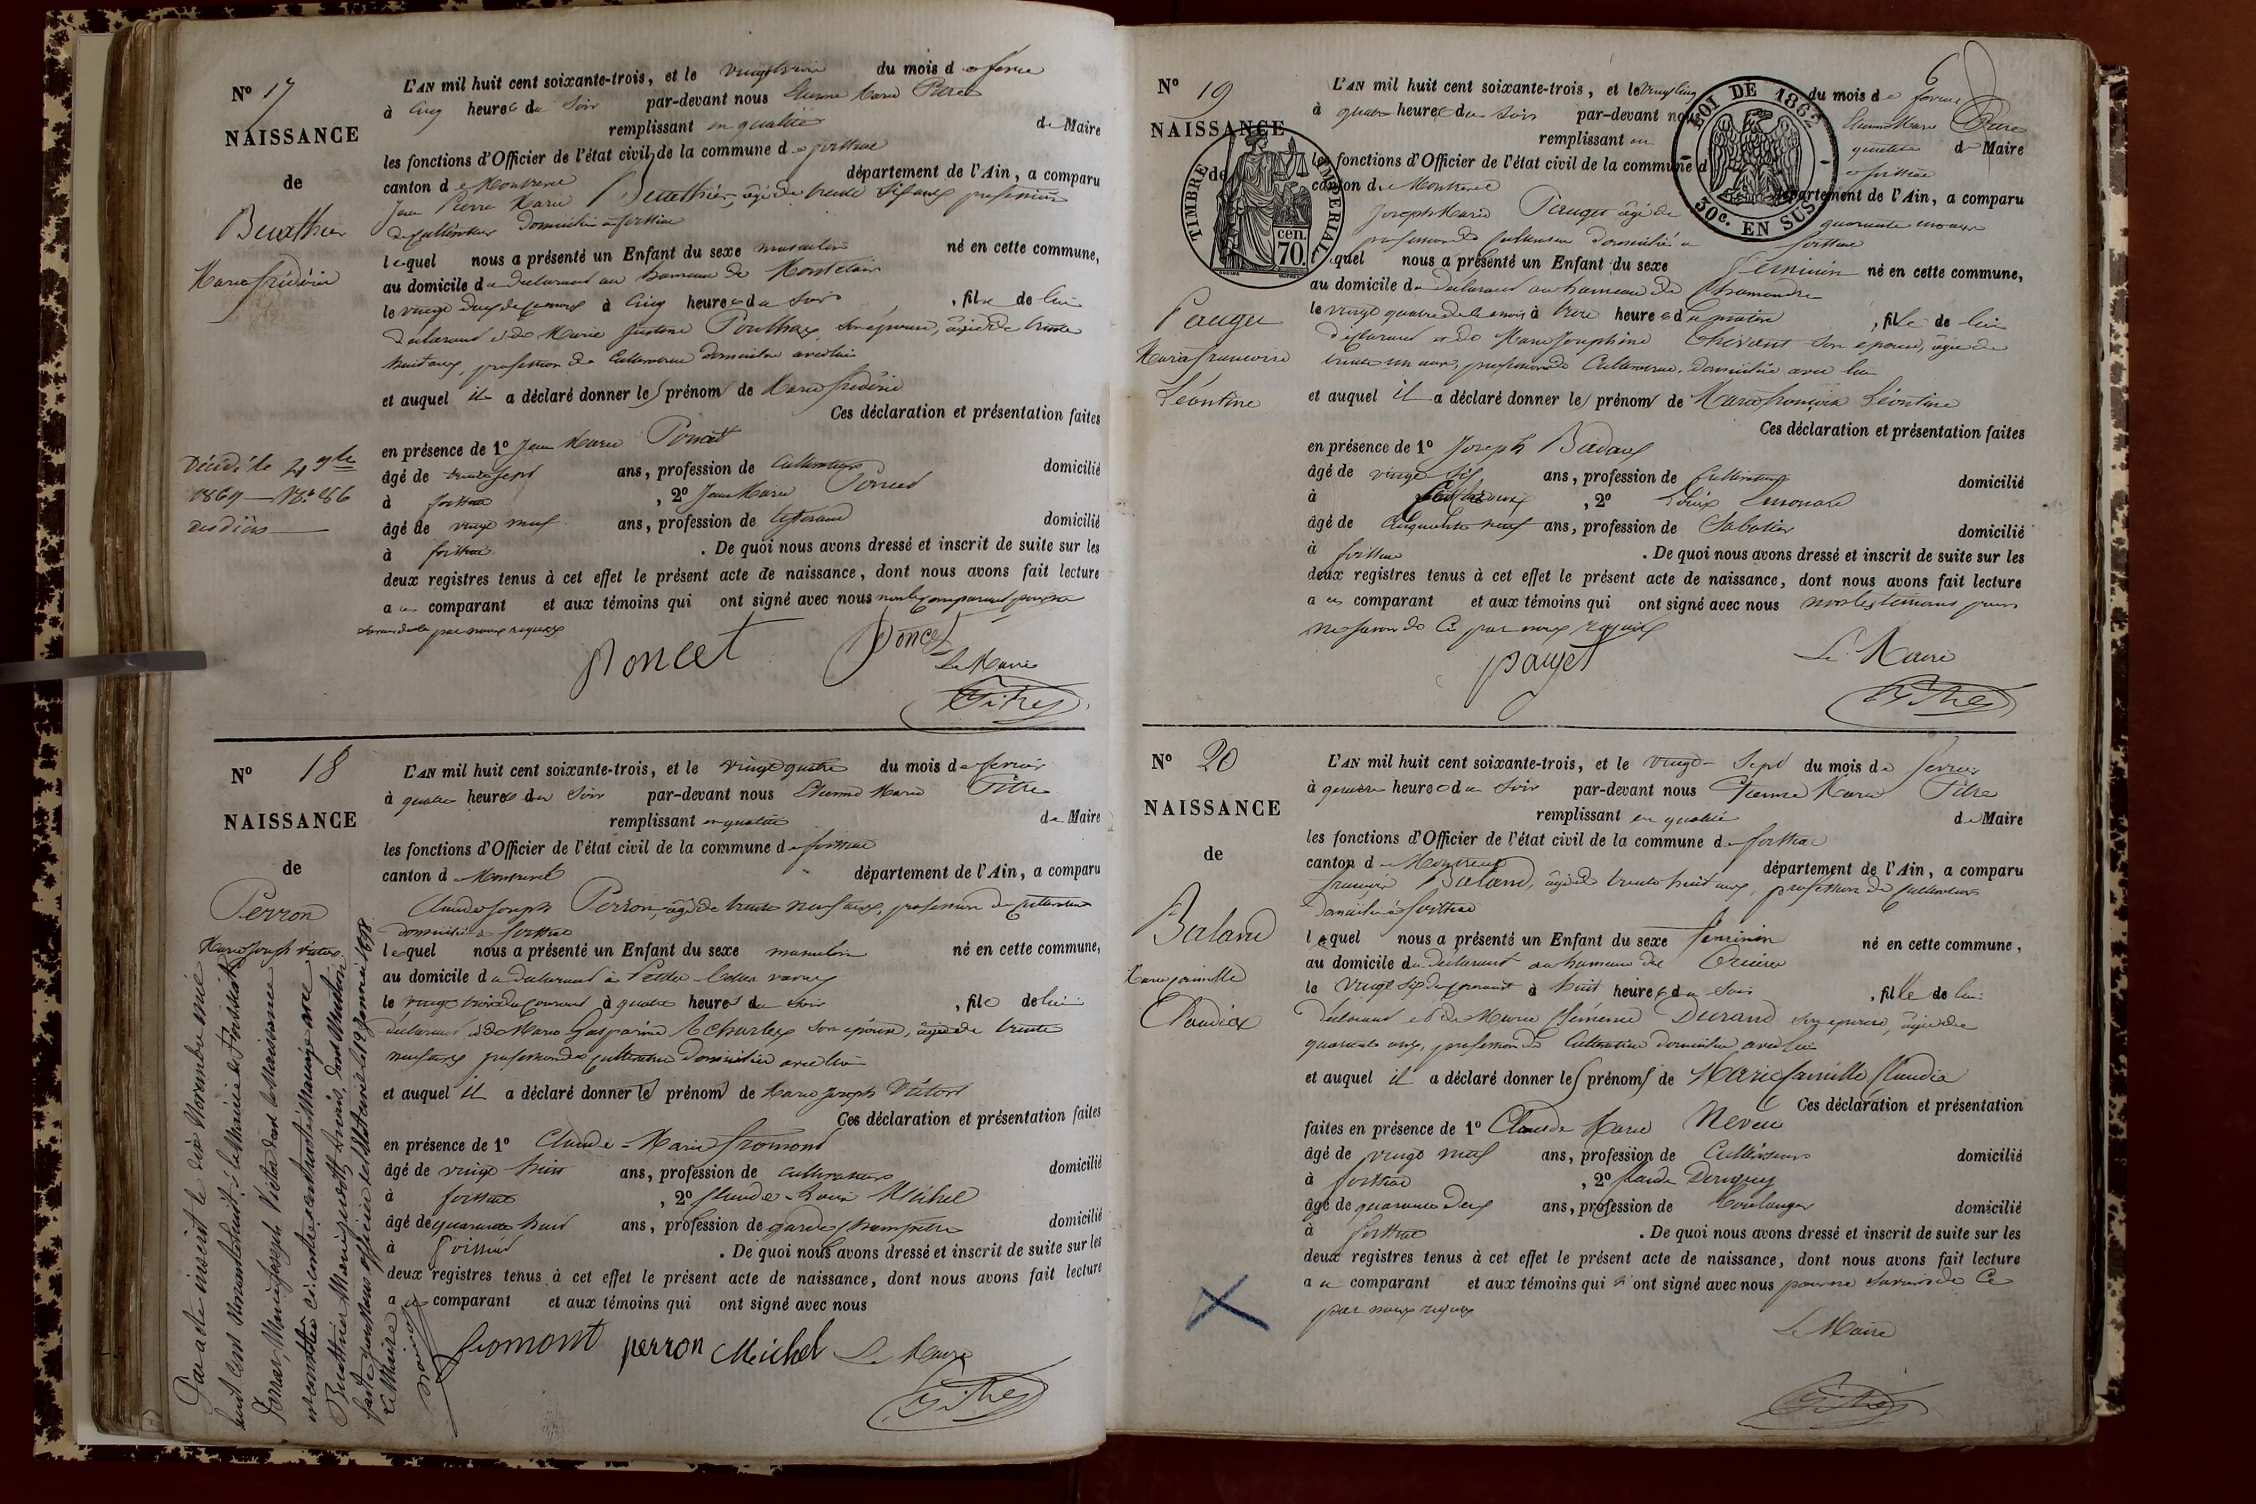 N° 17
NAISSANCE
de
Beuathier
Marie frédéric
Décédé le 4 9bre
1869 — N° 286
L'AN mil huit cent soixante-trois, et le vingt trois du mois de fevrier
à cinq heures du soir par-devant nous Etienne Marie Pitre
remplissant en qualité de Maire
les fonctions d'Officier de l'état civil de la commune de foissiat
canton de Montrevel département de l'Ain, a comparu
Jean Pierre Marie Beuathier, âgé de trente six ans profession
de cultivateur domicilié à foissiat
lequel nous a présenté un Enfant du sexe masculin né en cette commune,
au domicile du declarant au hameau de
le vingt deux de ce mois à cinq heures du soir, fils de lui
declarant et de Marie Justine son épouse, âgée de trente
huit ans, profession de Cultivateur domiciliée avec lui
et auquel il a déclaré donner les prénoms de Marie frédéric
Ces déclaration et présentation faites
en présence de 1° Jean Marie Poncet
âgé de trente sept ans, profession de cultivateur domicilié
à foissiat, 2° Jean Marie Poncet
âgé de vingt neuf ans, profession de tisserand domicilié
à foissiat. De quoi nous avons dressé et inscrit de suite sur les
deux registres tenus à cet effet le présent acte de naissance, dont nous avons fait lecture
a ce comparant et aux témoins qui ont signé avec nous non le comparant pour ne
savoir de ce par nous requis
Poncet Poncet
Le Maire
Pitre
N° 18
NAISSANCE
de
Perron
Marie Joseph Victor
L'AN mil huit cent soixante-trois, et le vingt quatre du mois de fevrier
à quatre heures du soir par-devant nous Etienne Marie Pitre
remplissant en qualité de Maire
les fonctions d'Officier de l'état civil de la commune de foissiat
canton de Montrevel département de l'Ain, a comparu
Claude Joseph Perron, âgé de trente neuf ans, profession de cultivateur
domicilié à foissiat
lequel nous a présenté un Enfant du sexe masculin né en cette commune,
au domicile du declarant à
le vingt trois du courant à quatre heures du soir, fils de lui
déclarant et de Marie Gasparine son épouse, âgée de trente
neuf ans profession de cultivateur domiciliée avec lui
et auquel il a déclaré donner les prénoms de Marie Joseph Victor
Ces déclaration et présentation faites
en présence de 1° Claude-Marie fromont
âgé de vingt huit ans, profession de cultivateur domicilié
à foissiat, 2° Claude Louis Michel
âgé de quarante huit ans, profession de garde champêtre domicilié
à foissiat. De quoi nous avons dressé et inscrit de suite sur les
deux registres tenus à cet effet le présent acte de naissance, dont nous avons fait lecture
a ce comparant et aux témoins qui ont signé avec nous
fromont perron Michel Le Maire
Pitre
Par acte inscrit le dix Novembre mil
huit cent à la mairie de Foissiat
Perron, Marie Joseph Victor dont la Naissance
est constatée ci-contre a contracté Mariage avec
Beuathier Marie
faite par Nous officier de l'état civil le 12 Janvier 1898
Le Maire
N° 19
NAISSANCE
de
Pauget
Marie francoise
Léontine
TIMBRE IMPERIAL
70 cen.
LOI DE 1862
30c. EN SUS
L'AN mil huit cent soixante-trois, et le vingt cinq du mois de fevrier
à quatre heures du soir par-devant nous Etienne Marie Pitre
remplissant en qualité de Maire
les fonctions d'Officier de l'état civil de la commune de foissiat
canton de Montrevel département de l'Ain, a comparu
Joseph Marie Pauget âgé de quarante
profession de cultivateur domicilié à foissiat
lequel nous a présenté un Enfant du sexe feminin né en cette commune,
au domicile du declarant au hameau de
le vingt quatre de ce mois à trois heures du matin, fille de lui
déclarant et de Marie Josephine son épouse, âgée de
trente un ans, profession de Cultivateur, domiciliée avec lui
et auquel il a déclaré donner les prénoms de Marie françoise Léontine
Ces déclaration et présentation faites
en présence de 1° Joseph Badoux
âgé de vingt six ans, profession de Cultivateur domicilié
à, 2°
âgé de cinquante neuf ans, profession de Sabotier domicilié
à foissiat. De quoi nous avons dressé et inscrit de suite sur les
deux registres tenus à cet effet le présent acte de naissance, dont nous avons fait lecture
a ce comparant et aux témoins qui ont signé avec nous non les témoins pour
ne savoir de ce par nous requis
pauget Le Maire
Pitre
N° 20
NAISSANCE
de
Baland
Marie famille
Claudia
L'AN mil huit cent soixante-trois, et le vingt-sept du mois de fevrier
à quatre heures du soir par-devant nous Etienne Marie Pitre
remplissant en qualité de Maire
les fonctions d'Officier de l'état civil de la commune de foissiat
canton de Montrevel département de l'Ain, a comparu
françois Baland, âgé de trente huit ans, profession de cultivateur
domicilié à foissiat
lequel nous a présenté un Enfant du sexe feminin né en cette commune,
au domicile du déclarant au hameau de
le vingt six du courant à huit heures du soir, fille de lui
déclarant et de Marie Clémence Durand son épouse, âgée de
quarante ans, profession de Cultivateur domiciliée avec lui
et auquel il a déclaré donner les prénoms de Marie famille Claudia
Ces déclaration et présentation
faites en présence de 1° Claude Marie Neveu
âgé de vingt neuf ans, profession de Cultivateur domicilié
à foissiat, 2° Claude
âgé de quarante deux ans, profession de boulanger domicilié
à foissiat. De quoi nous avons dressé et inscrit de suite sur les
deux registres tenus à cet effet le présent acte de naissance, dont nous avons fait lecture
a ce comparant et aux témoins qui n'ont signé avec nous pour ne savoir de ce
par nous requis
Le Maire
Pitre